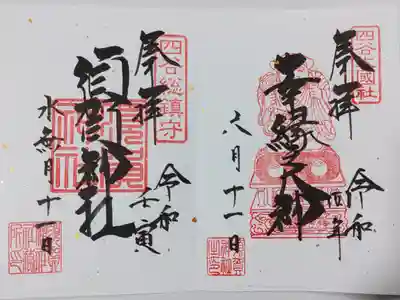 四谷大國社
奉拝
幸縁大神
令和四年
八月十一日
四谷総鎮守
奉拝
須賀神社
令和壬寅
水無月十一日